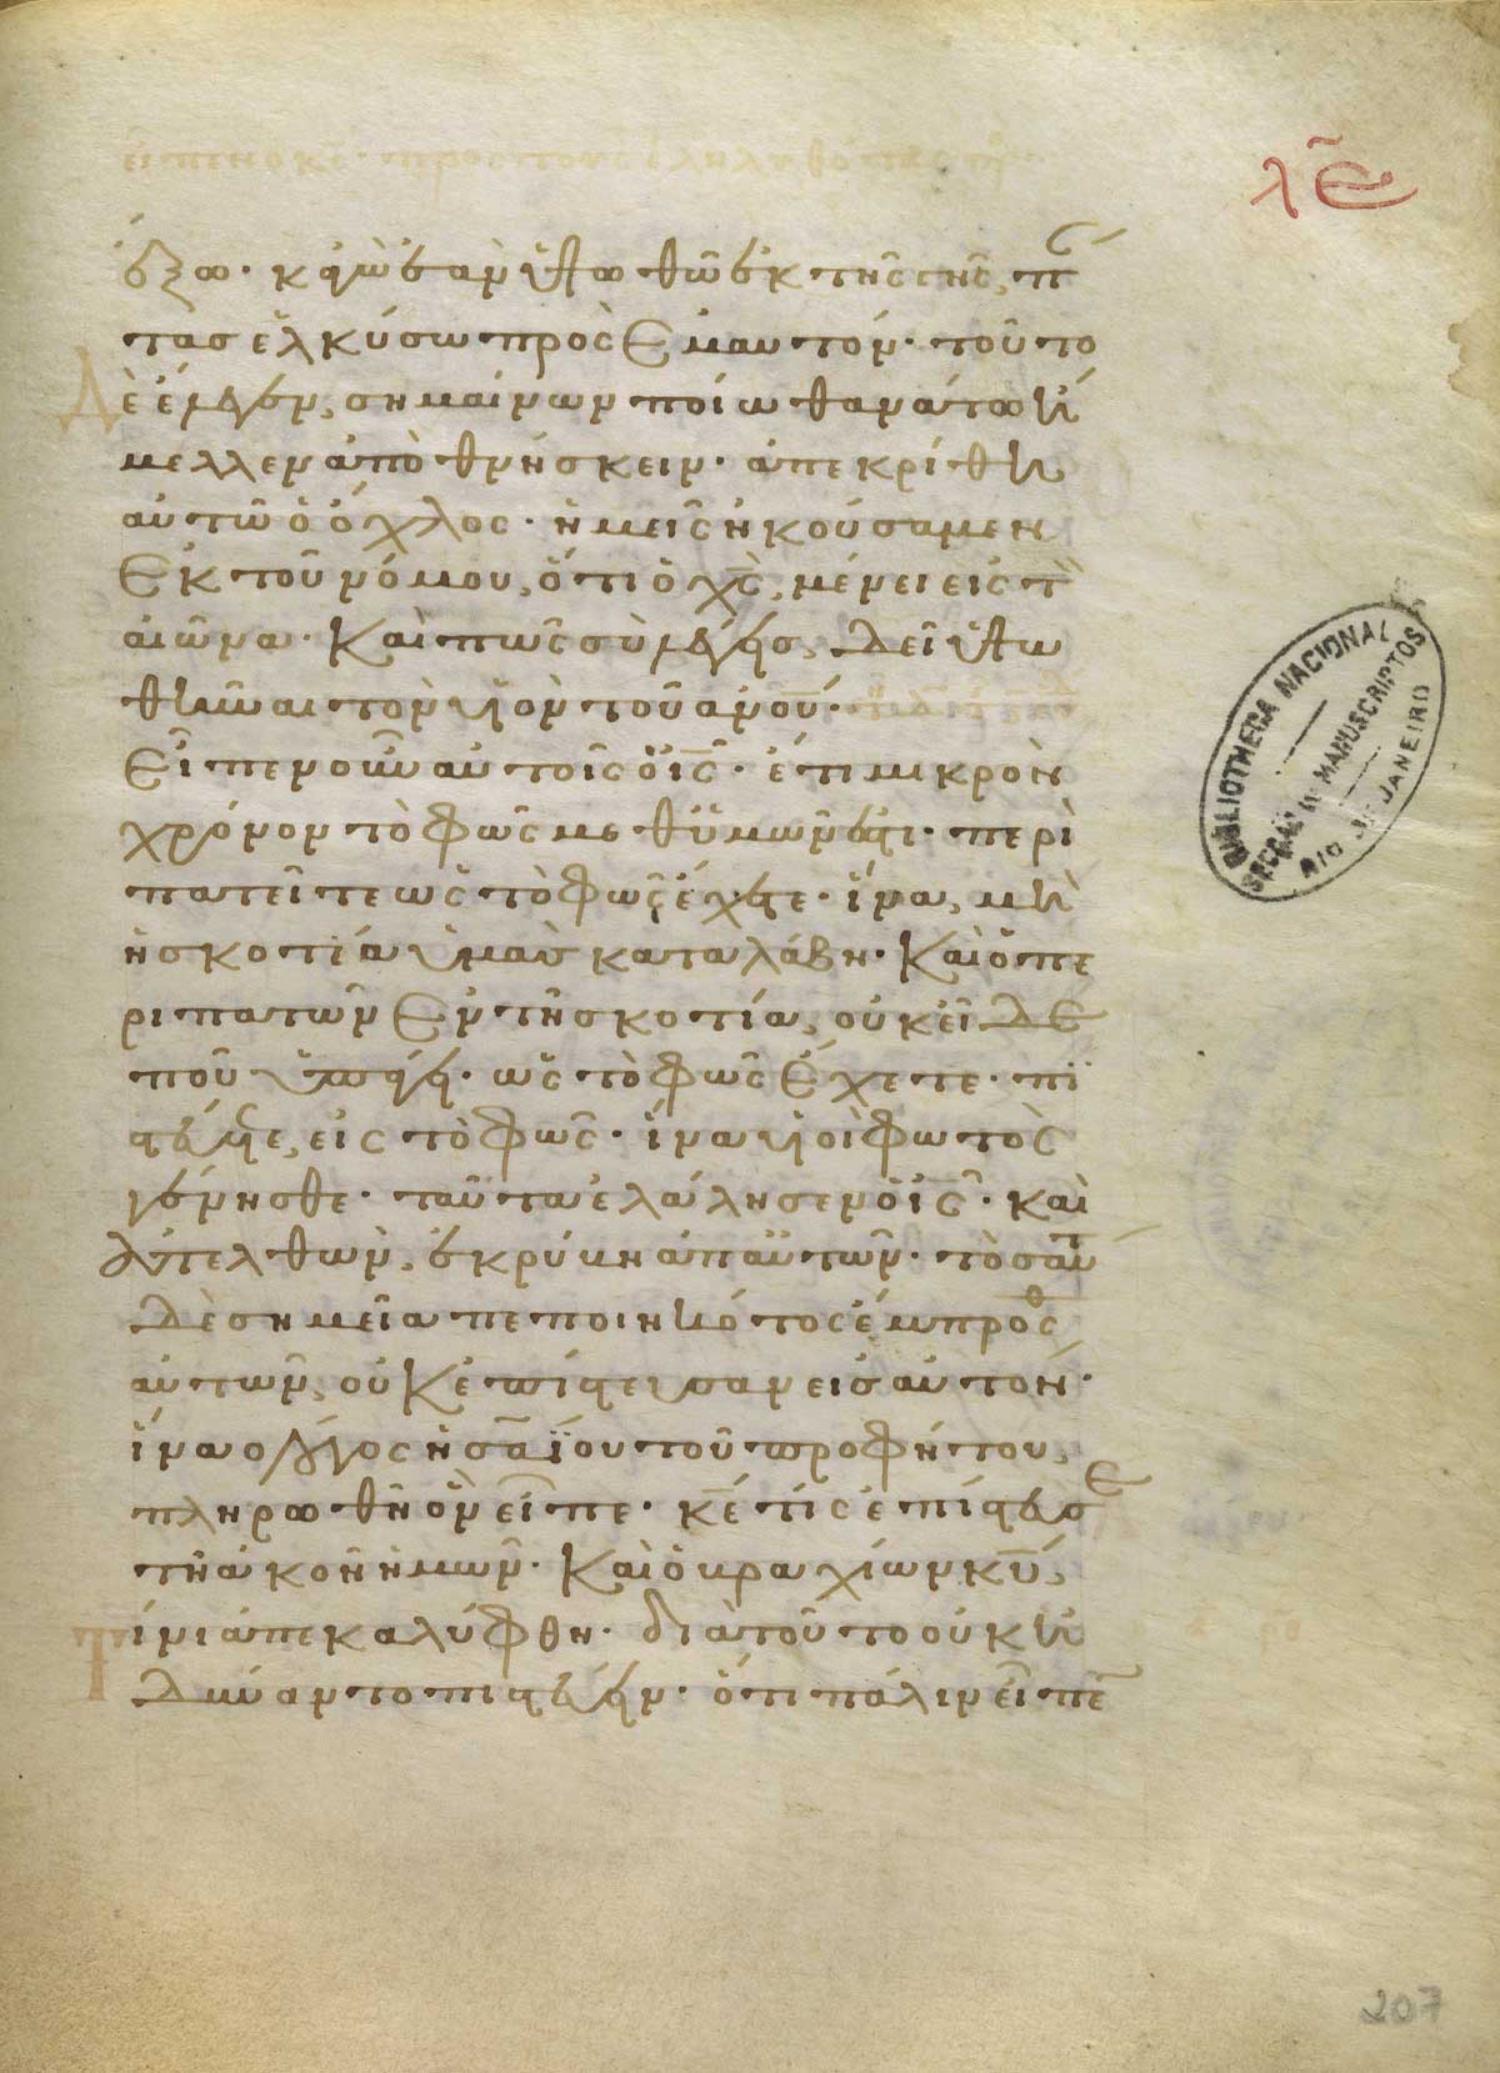 λε
έξω· κἀγὼ ἐὰν ὑψωθῶ ἐκ τῆς γῆς, π
τασ ἑλκύσω πρὸς ἐμαυτόν· τοῦτο
δὲ ἔλεγεν, σημαίνων ποίω θανάτω ἤ
μελλεν ἀποθνήσκειν· ἀπεκρίθη
αὐτῶ ὁ ὄχλος· ἡμεῖς ἠκούσαμεν
ἐκ τοῦ νόμου, ὅτι ὁ χς, μένει εἰς τὸ
αἰῶνα· καὶ πῶς σὺ λέγεις, δεῖ ὑψω
θῆναι τὸν υἱὸν τοῦ ανου·
εἶπεν οὖν αὐτοῖς ὁ ις· ἔτι μικρὸν
χρόνον τὸ φῶς μεθ' ὑμῶν ἐστι· περι
πατεῖτε ὡς τὸ φῶς ἔχετε· ἵνα, μὴ
ἡ σκοτία ὑμᾶς καταλάβη· καὶ ὁ πε
ριπατῶν ἐν τῆ σκοτία, οὐκ εἶδε
ποῦ ὑπάγει· ὡς τὸ φῶς ἔχετε· πι
στεύετε, εἰς τὸ φῶς· ἵνα υἱοὶ φωτὸς
γένησθε· ταῦτα ἐλάλησεν ὁ ις· καὶ
ἀπελθὼν, ἐκρύβη ἀπ' αὐτῶν· τοσαῦτ
δὲ σημεῖα πεποιηκότος ἔμπροσθ
αὐτῶν, οὐκ ἐπίστευσαν εἰς αὐτόν·
ἵνα ὁ λόγος ἡσαΐου τοῦ προφήτου,
πληρωθῆ ὃν εἶπε· κε τίς ἐπίστευσε
τῆ ἀκοῆ ἡμῶν· καὶ ὁ βραχίων κυ,
τίνι ἀπεκαλύφθη· διὰ τοῦτο οὐκ ἠ
δύναντο πιστεύειν· ὅτι πάλιν εἶπε
BIBLIOTHECA NACIONAL
SECÇÃO DE MANUSCRIPTOS
RIO DE JANEIRO
207